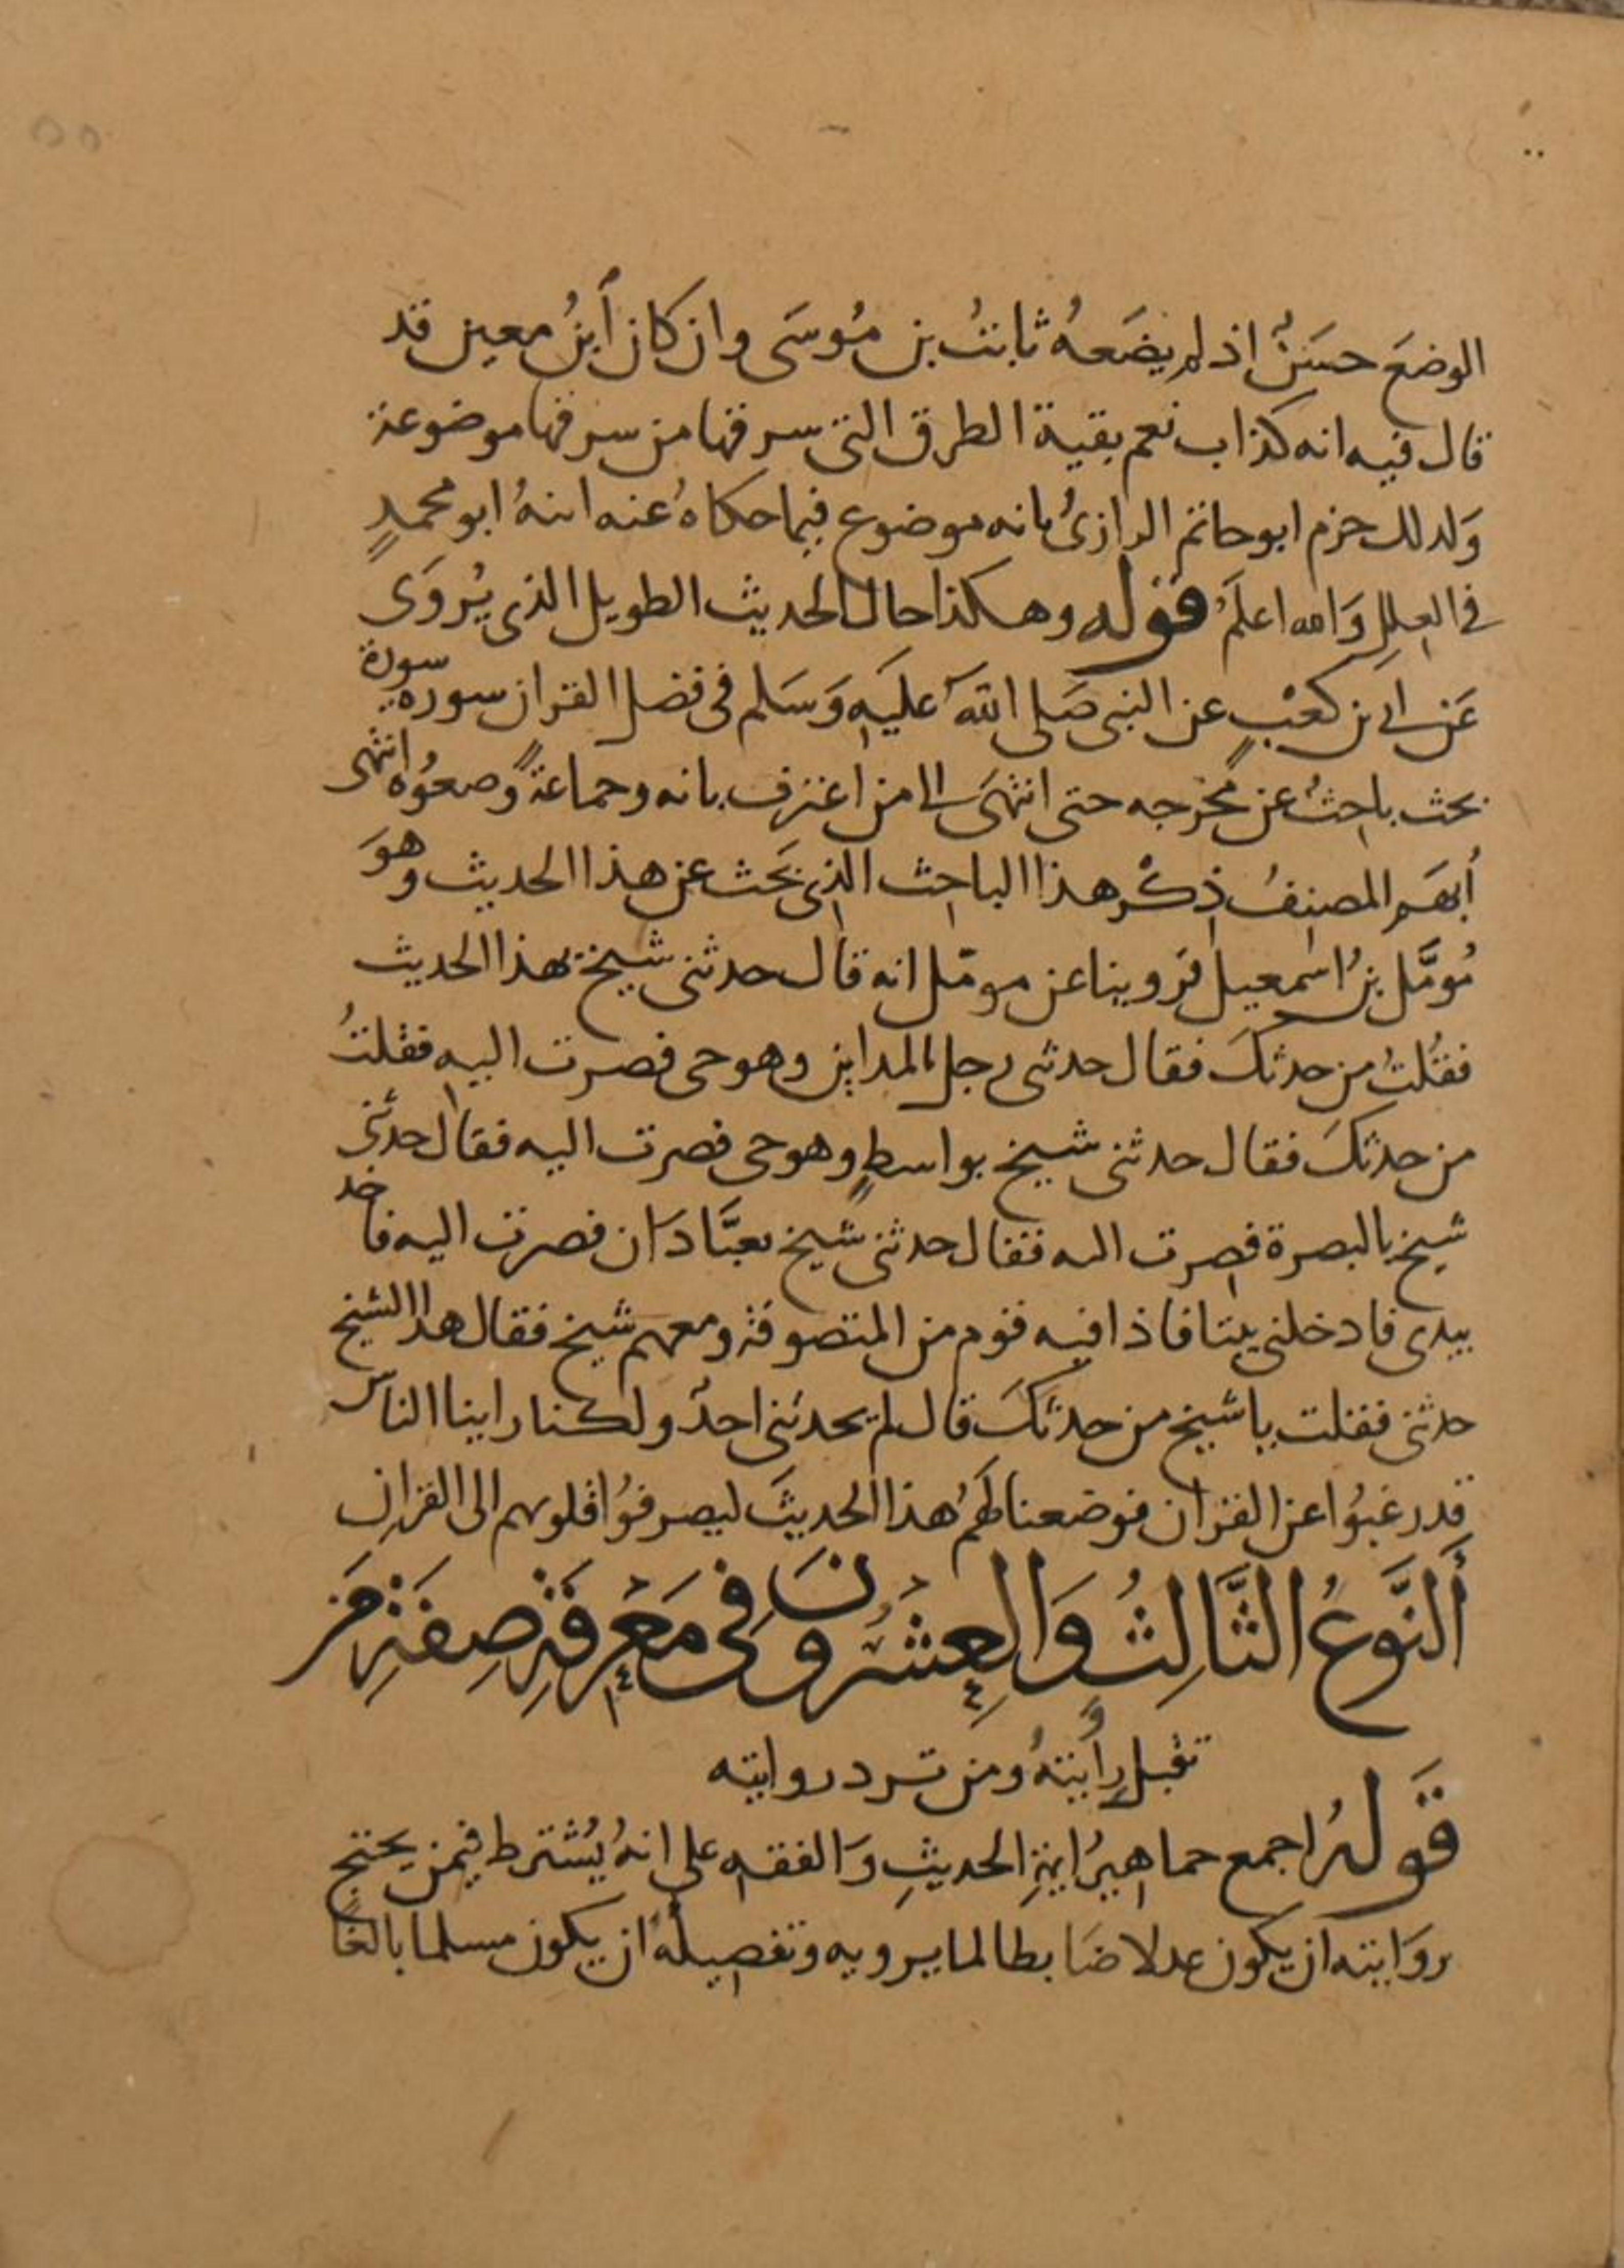 الوضعَ حسَنٌ اذ لم يضَعهُ ثابتُ بن مُوسَى وان كان أبنُ معين قد
قال فيه انه كذاب نعم بقية الطرق التي سرقها من سرقها موضوعة
وَلذلك جزم ابو حاتم الرازىُ بانه موضوع فيما حكاهُ عنه ابنهُ ابو محمدٍ
في العِللِ وَالله اعلمُ قوله وهكذا حال الحديث الطويل الذى يُروَى
عَن ابي بن كعْبٍ عن النبي صَلى اللهُ عليَهِ وَسَلم في فضل القران سورة سورة
بحث باحثُ عن مُخرجه حتى انتهَى الى من اعترف بانه وجماعةً وضعوُه انتهى
أبهَم المصنفُ ذِكْر هذا الباحث الذي بَحَث عن هذا الحديث وهوَ
مُومَّل بنُ اسمعيل فرَوينا عن مومّل انه قال حدثني شيخ بهذا الحديث
فقُلتُ من حدثكَ فقال حدثني رجل بالمداين وهو حي فصرت اليه فقلتُ
من حدثكَ فقال حدثني شيخ بواسطٍ وهو حي فصرت اليه فقال حدثني
شيخ بالبصرة فصرت اليه فقال حدثني شيخ بعبَّادَان فصرت اليه فاخذ
بيدى فادخلني بيتا فاذا فيه قوم من المتصوفة ومعهم شيخ فقال هذا الشيخ
حدثني فقلت يا شيخ من حدثكَ قال لم يحدثني احدٌ ولكنا راينا الناسَ
قد رغبُوا عن القران فوضعنا لهُم هذا الحديثَ ليصرفوُا قلوبهم الى القران
ألنَّوعُ الثَّالِثُ وَالعِشْرُونَ فِي مَعْرِفَةِ صِفَةِ مَن
تقبل رِوأيتهُ ومن ترد روايته
قَولهُ اجمع جماهيرُ ايمةِ الحديثِ وَالفقه على انهُ يُشترط فيمن يحتج
بروَايته ان يكون عدلا ضَابطا لما يرويه وتفصيلُهُ ان يكون مسلما بالغًا